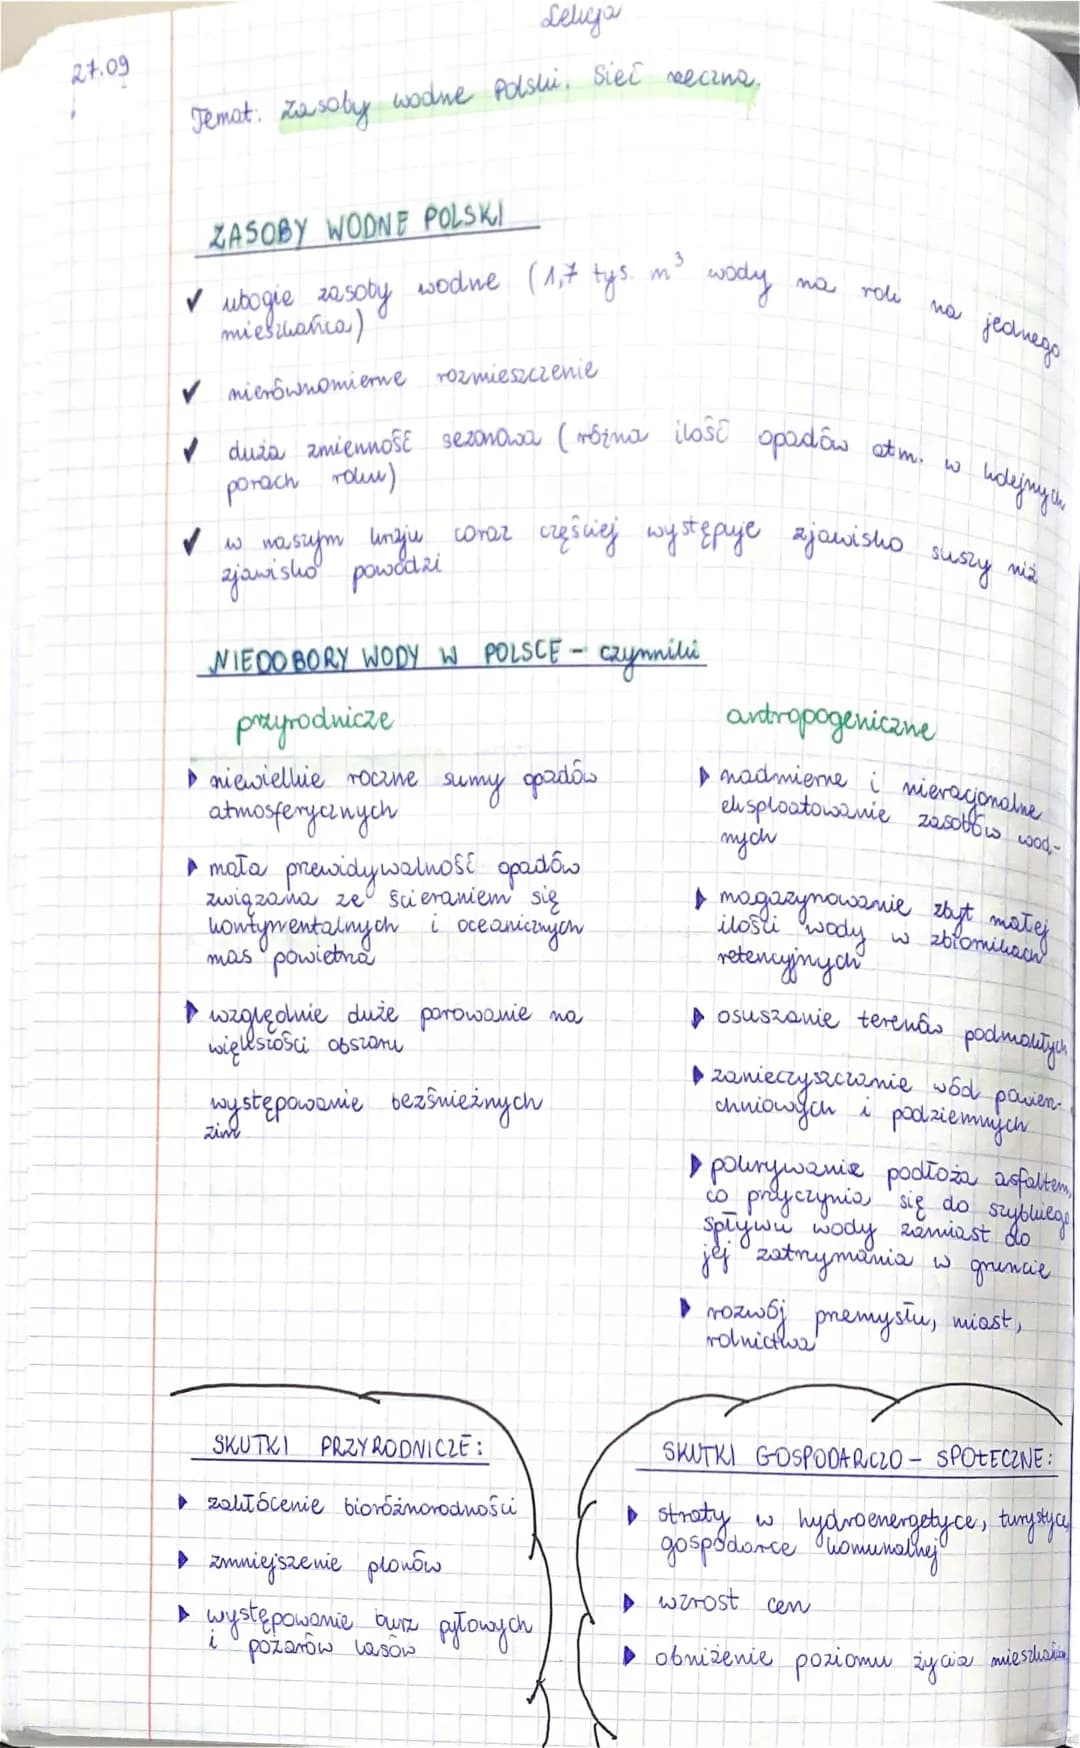 Lekcja
27.09
Temat: Zasoby wodne Polski. Sieć rzeczna.
ZASOBY WODNE POLSKI
✓ ubogie zasoby wodne (1,7 tys. m³ wody na rok na jednego
mieszkańca)
✓ nierównomierne rozmieszczenie
✓ duża zmienność sezonowa (różna ilość opadów atm. w kolejnych
porach roku)
✓ w naszym kraju coraz częściej występuje zjawisko suszy niż
zjawisko powodzi
NIEDOBORY WODY W POLSCE - czynniki
przyrodnicze
▶ niewielkie roczne sumy opadów
atmosferycznych
▶ mała przewidywalność opadów
związana ze ścieraniem się
kontynentalnych i oceanicznych
mas powietrza
▶ względnie duże parowanie na
większości obszaru
występowanie bezśnieżnych
zim
antropogeniczne
▶ nadmierne i nieracjonalne
eksploatowanie zasobów wod-
nych
▶ magazynowanie zbyt małej
ilości wody w zbiornikach
retencyjnych
▶ osuszanie terenów podmokłych
▶ zanieczyszczanie wód powierz-
chniowych i podziemnych
▶ pokrywanie podłoża asfaltem,
co przyczynia się do szybkiego
spływu wody zamiast do
jej zatrzymania w gruncie
▶ rozwój przemysłu, miast,
rolnictwa
SKUTKI PRZYRODNICZE:
▶ zakłócenie bioróżnorodności
▶ zmniejszenie plonów
▶ występowanie burz pyłowych
i pożarów lasów
SKUTKI GOSPODARCZO - SPOŁECZNE:
▶ straty w hydroenergetyce, turystyce,
gospodarce komunalnej
▶ wzrost cen
▶ obniżenie poziomu życia mieszkańców